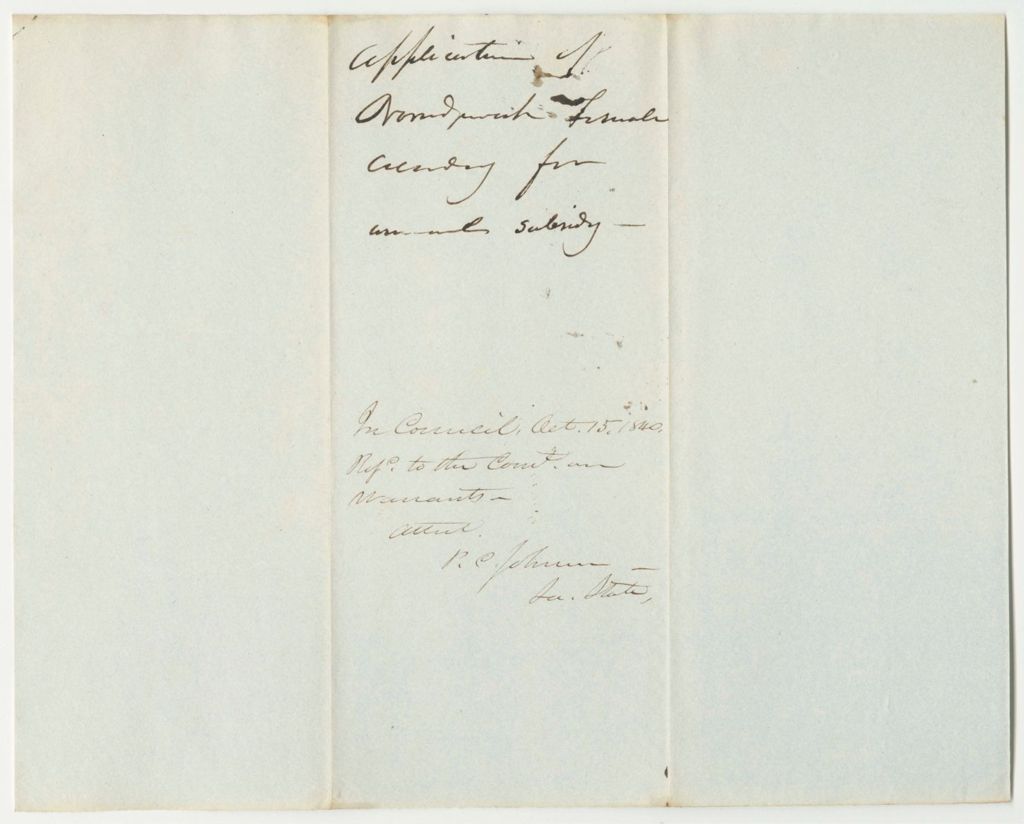 Application of
Woodswich Female
Academy for
annual subsidy —
In Council, Oct. 15, 1840.
Refd. to the Comt. on
Warrants —
Attest.
P. C. Johnson —
Sec. State,